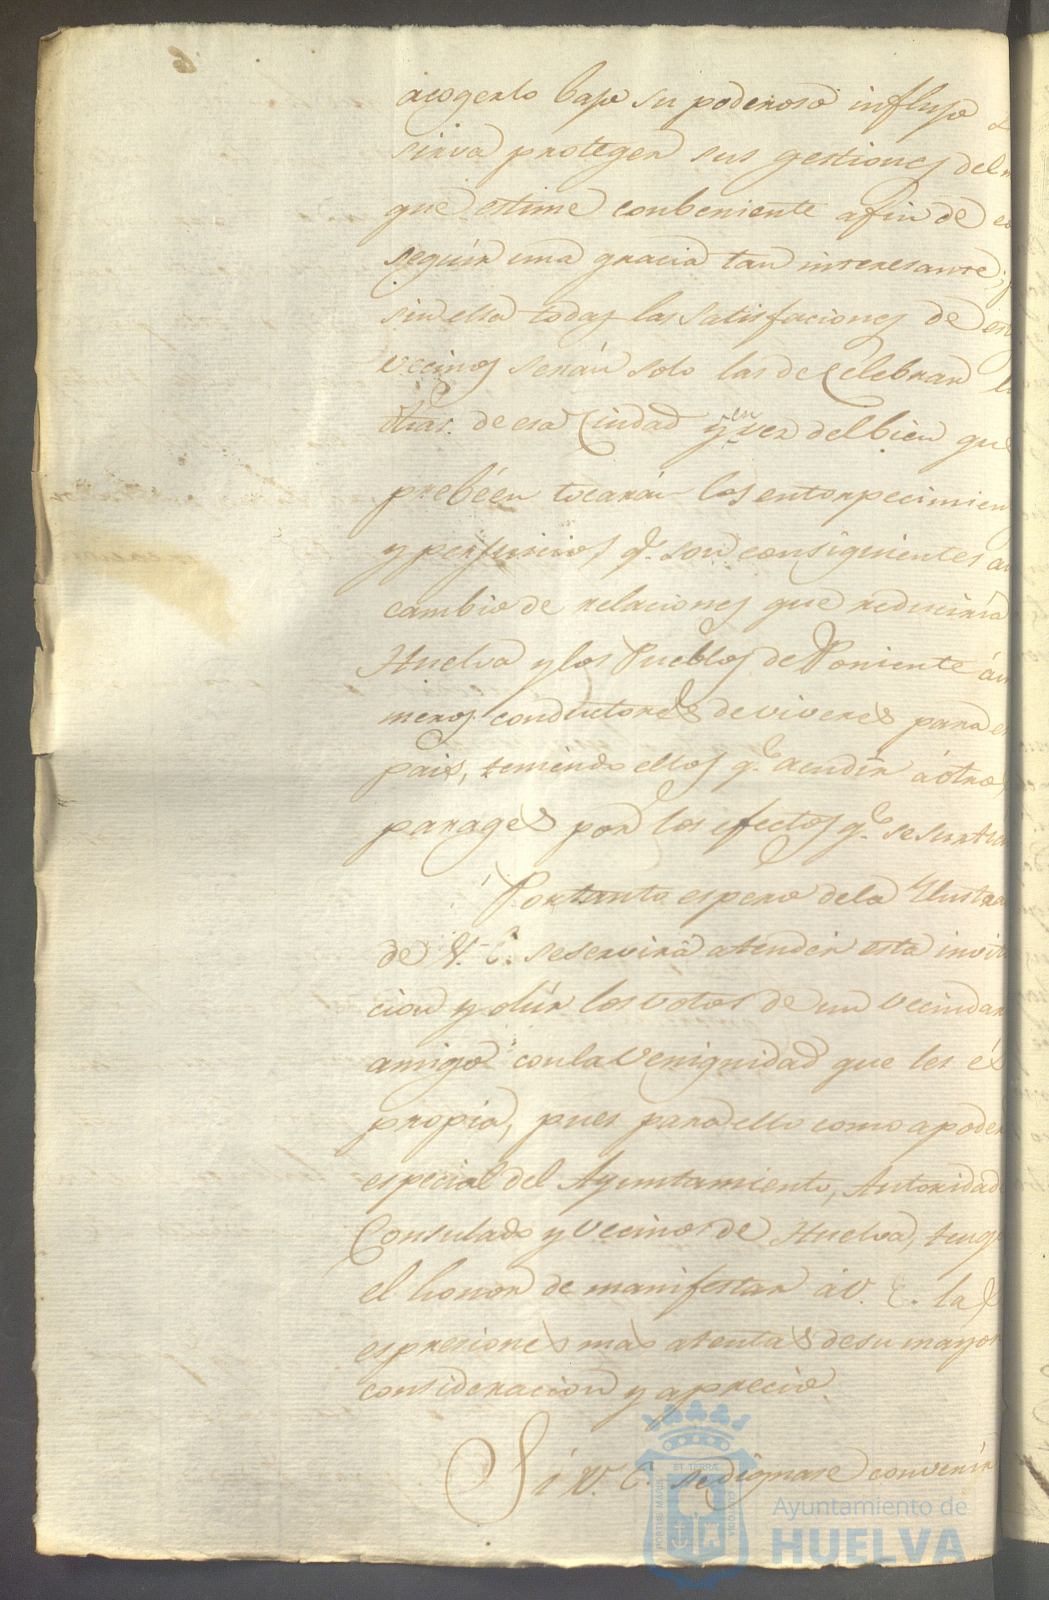 acogerlo bajo su poderoso influjo
sirva proteger sus gestiones del m
que estime conbeniente afin de co
seguir una gracia tan interesante;
sin ella todas las satisfaciones de es
vecinos serán solo las de celebrar l
dhas. de esa Ciudad y en vez del bien que
prebéen tocarán los entorpecimien
y perjuicios q.e son consiguientes a
cambio de relaciones que reduciria
Huelva y los Pueblos de Poniente á
meros conductores de viveres para e
pais, teniendo ellos q.e acudir á otros
parages por los efectos q.e se surten
Portanto espero dela Ylustra
de V. E. se servirá atender esta invit
cion y oir los votos de un vecindar
amigo con la venignidad que les es
propia, pues para ello como apoder
especial del Ayuntamiento, Autoridad
Consulado y vecinos de Huelva, teng
el honor de manifestar á V. E. las
espresiones mas atentas de su mayor
consideracion y aprecio.
Si V. E. se dignase convenir
PORTUS MARIS ET TERRAE CUSTODIA
Ayuntamiento de
HUELVA